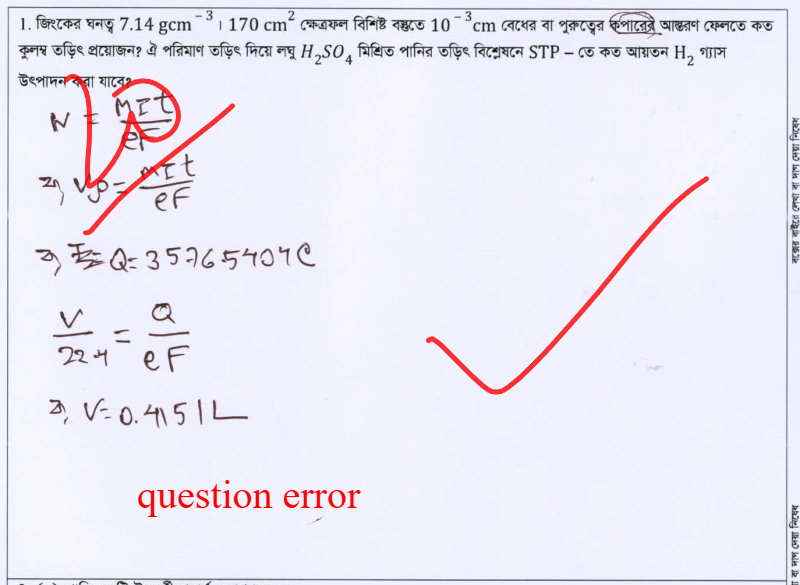 1. জিংকের ঘনত্ব 7.14 gcm⁻³ । 170 cm² ক্ষেত্রফল বিশিষ্ট বস্তুতে 10⁻³cm বেধের বা পুরুত্বের কপারের আস্তরণ ফেলতে কত
কুলম্ব তড়িৎ প্রয়োজন? ঐ পরিমাণ তড়িৎ দিয়ে লঘু H₂SO₄ মিশ্রিত পানির তড়িৎ বিশ্লেষনে STP – তে কত আয়তন H₂ গ্যাস
উৎপাদন করা যাবে?
W = MIt/eF
বা, Vρ = MIt/eF
বা, Q = 3576.5404 C
V/22.4 = Q/eF
বা, V = 0.4151 L
question error
বক্সের বাইরে লেখা বা দাগ দেয়া নিষেধ
বা দাগ দেয়া নিষেধ